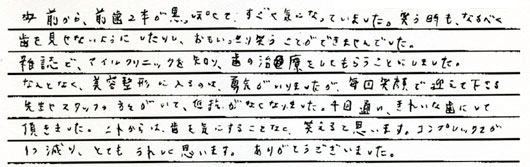 前から、前歯2本が黒っぽくて、すごく気になっていました。笑う時も、なるべく
歯を見せないようにしたりし、おもいっきり笑うことができませんでした。
雑誌で、スマイルクリニックを知り、歯の治療をしてもらうことにしました。
なんとなく、美容整形に入るのは、勇気がいりましたが、毎回笑顔で迎えて下さる
先生やスタッフの方々がいて、抵抗がなくなりました。4回通い、きれいな歯にして
頂きました。これからは、歯を気にすることなく、笑えると思います。コンプレックスが
1つ減り、とてもうれしく思います。ありがとうございました。